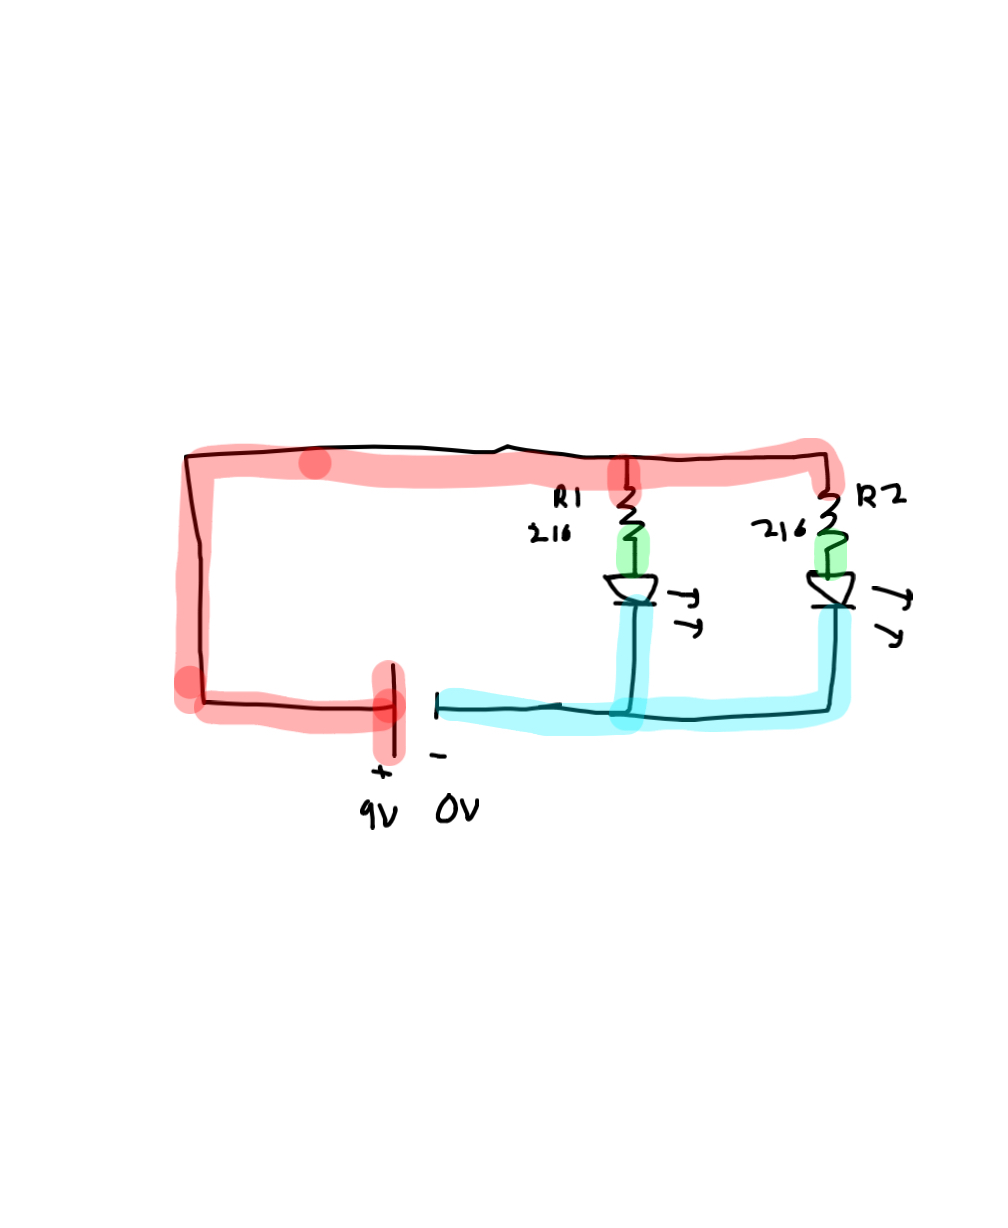 R1
216
R2
216
+ -
9V 0V